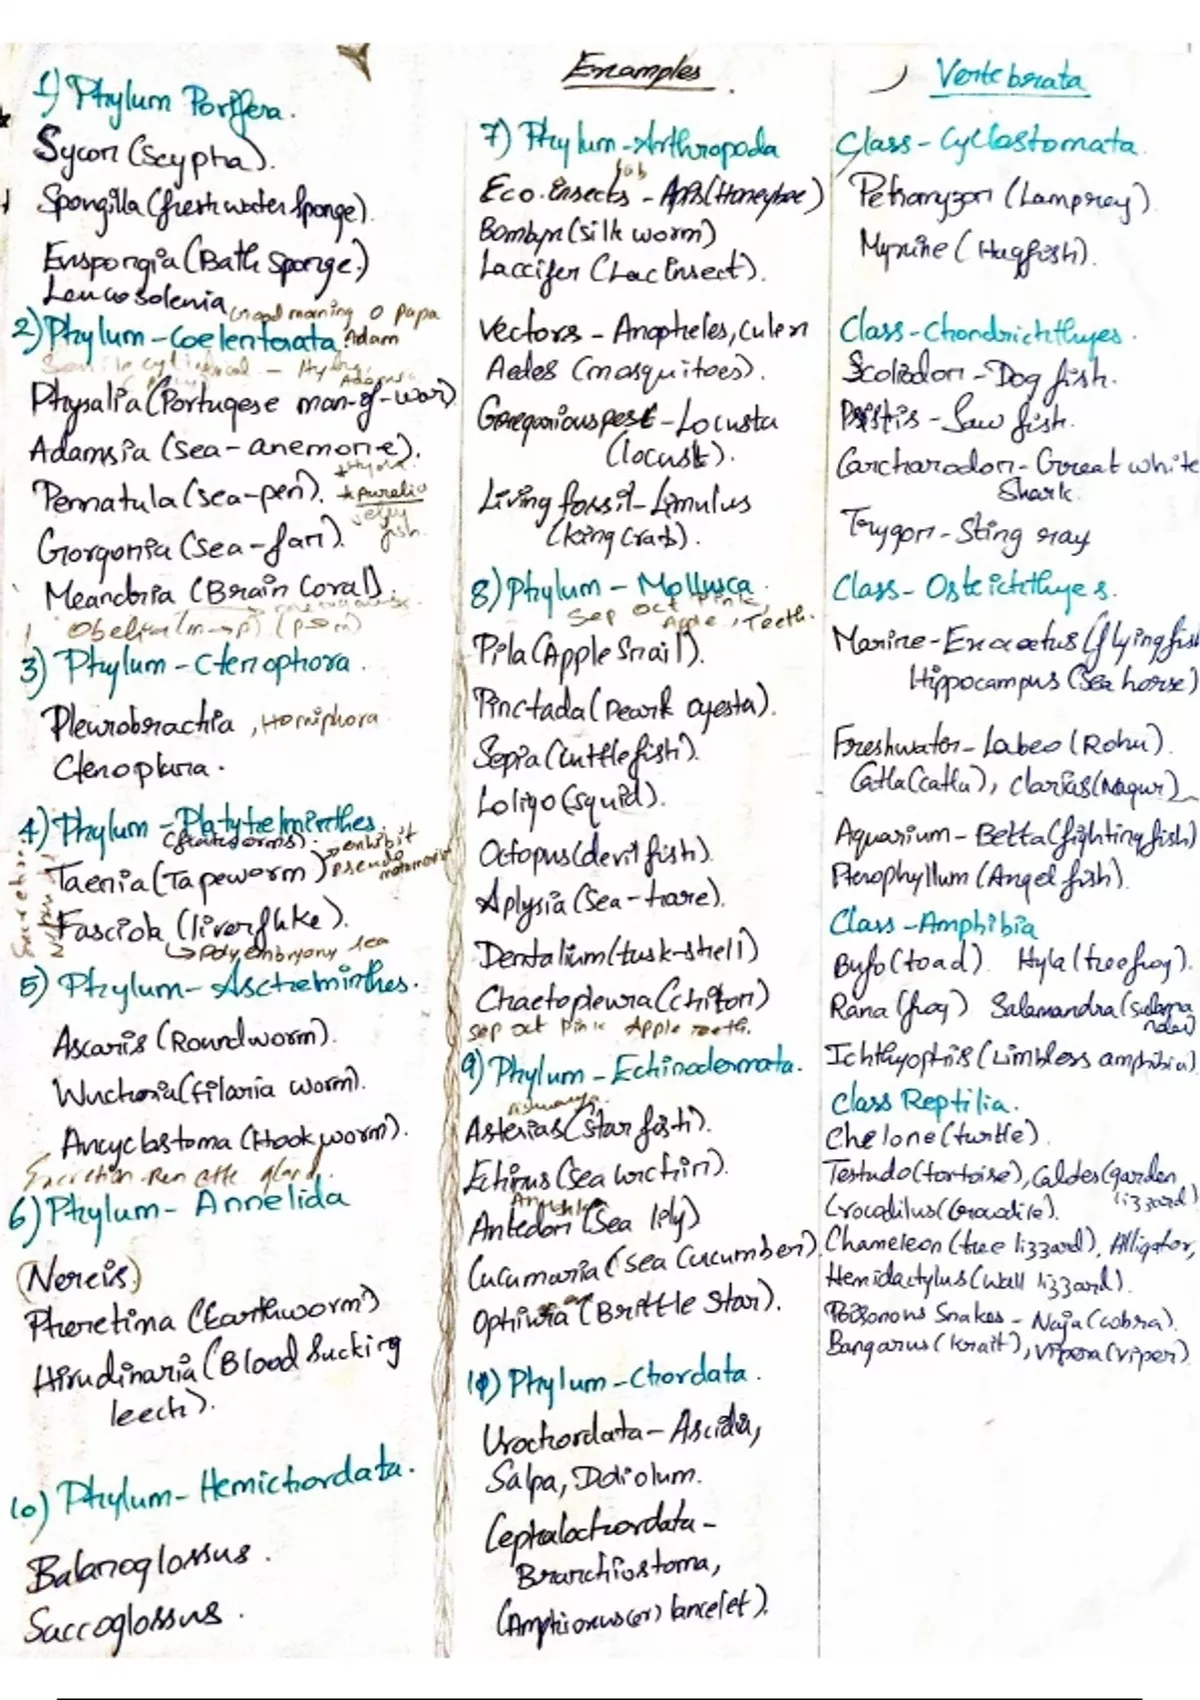 Examples
1) Phylum Porifera.
Sycon (Scypha).
Spongilla (fresh water Sponge).
Euspongia (Bath Sponge.)
Leucosolenia
Good morning O papa
2) Phylum - Coelenterata Adam
Physalia (Portugese man-of-war)
Adamsia (Sea-anemone).
Pennatula (sea-pen).
Hydra
Aurelia
jelly
fish.
Gorgonia (Sea-fan).
Meandria (Brain Coral).
Obelia (m→p) (p→m)
3) Phylum - Ctenophora.
Pleurobrachia, Horniphora
Ctenoplana.
4) Phylum - Platyhelminthes.
(flatworms).
Taenia (Tapeworm)
exhibit
pseudo
metamerism
Fasciola (liverfluke).
↳ Polyembryony
5) Phylum - Aschelminthes.
Ascaris (Roundworm).
Wucheria (filaria worm).
Ancyclostoma (Hookworm).
Excretion - Renette gland.
6) Phylum - Annelida
(Nereis)
Pheretima (Earthworm)
Hirudinaria (Blood Sucking
leech).
10) Phylum - Hemichordata.
Balanoglossus.
Saccoglossus.
7) Phylum - Arthropoda
Eco. Insects - Apis (Honeybee)
Bombyx (silk worm)
Laccifer (Lac Insect).
Vectors - Anopheles, Culex
Aedes (mosquitoes).
Gregarious pest - Locusta
(locust).
Living fossil - Limulus
(King Crab).
8) Phylum - Mollusca.
Sep Oct Pink,
Apple, Teeth.
Pila (Apple Snail).
Pinctada (Pearl oyesta).
Sepia (Cuttlefish).
Loligo (squid).
Octopus (devil fish).
Aplysia (Sea-hare).
Dentalium (tusk-shell)
Chaetopleura (chiton)
Sep oct Pink Apple teeth.
9) Phylum - Echinodermata.
Asterias (Star fish).
Echinus (Sea urchin).
Antedon (Sea lily)
Cucumaria (Sea Cucumber)
Ophiura (Brittle Star).
10) Phylum - Chordata.
Urochordata - Ascidia,
Salpa, Doliolum.
Cephalochordata -
Branchiostoma,
(Amphioxus (or) lancelet).
Vertebrata
Class - Cyclostomata.
Petromyzon (Lamprey).
Myxine (Hagfish).
Class - Chondrichthyes.
Scoliodon - Dog fish.
Pristis - Saw fish.
Carcharodon - Great white
Shark.
Trygon - Sting ray
Class - Osteichthyes.
Marine - Exocoetus (flying fish
Hippocampus (Sea horse)
Freshwater - Labeo (Rohu).
Catla (catla), Clarias (Magur)
Aquarium - Betta (fighting fish)
Pterophyllum (Angel fish).
Class - Amphibia
Bufo (toad). Hyla (treefrog).
Rana (frog) Salamandra (salama
nder)
Ichthyophis (Limbless amphibia)
Class Reptilia.
Chelone (turtle).
Testudo (tortoise), Calotes (garden
lizzard)
Crocodilus (Crocodile).
Chameleon (tree lizzard), Alligator,
Hemidactylus (wall lizzard).
Poisonous Snakes - Naja (cobra).
Bangarus (krait), Vipera (viper)